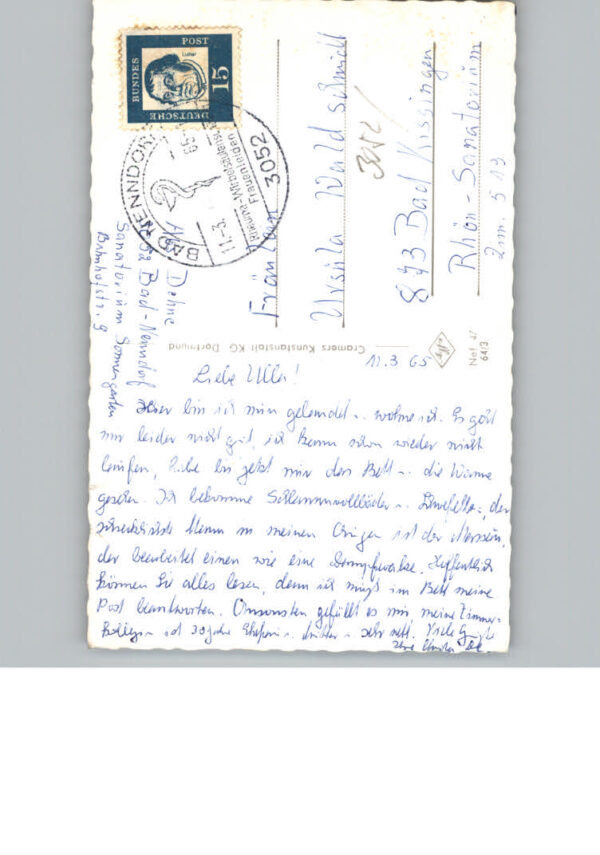 DEUTSCHE
BUNDES
POST
Luther
15
BAD NENNDORF
3052
11.3.65
Rheuma-Wirbelsäulensch
Frauenleiden
Fräulein
Ursula Waldschmidt
873 Bad Kissingen
Rhön-Sanatorium
Zim. 513
3052
Dehne
Bad-Nenndorf
Sanatorium Sonnengarten
Bahnhofstr. 9
Cramers Kunstanstalt KG Dortmund
64/3
11.3.65
Liebe Ulla!
Hier bin ich nun gelandet u. wohne ich. Es geht
mir leider nicht gut, ich kann schon wieder nicht
laufen, habe bis jetzt nur das Bett u. die Wanne
gesehen. Ich bekomme Schlammvollbäder u. der
schrecklichste Mann in meinen Augen ist der Masseur,
der bearbeitet einen wie eine Dampfwalze. Hoffentlich
können Sie alles lesen, denn ich muß im Bett meine
Post beantworten. Ansonsten gefällt es mir, meine Zimmer-
kollegin ist 30 Jahre sehr nett. Viele Grüße
Ihre